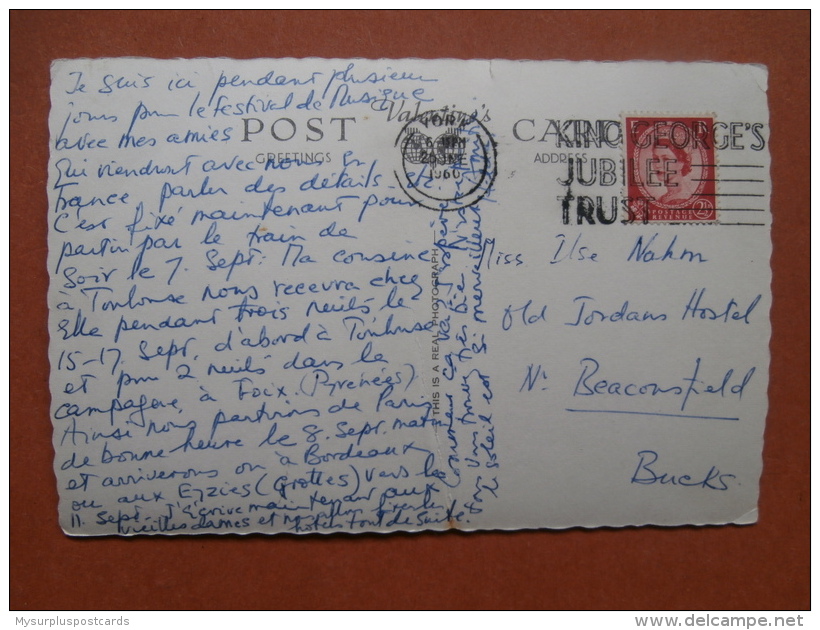 Je suis ici pendant plusieurs
jours pour le festival de Musique
avec mes amies
qui viendront avec nous en
France parler des détails etc.
C'est fixé maintenant pour
partir par le train de
soir le 7. Sept. Ma cousine
à Toulouse nous recevra chez
elle pendant trois nuits, le
15-17. Sept. d'abord à Toulouse
et pour 2 nuits dans la
campagne, à Foix. (Pyrenées)
Ainsi nous partirons de Paris
de bonne heure le 8. Sept. matin
et arriverons ou à Bordeaux
ou aux Eyzies (Grottes) vers le
11. Sept. J'écrive maintenant aux
vieilles dames et
hotel tout de suite.
Comment ça va, j'espère
vous trouvez très bien.
le soleil est si merveilleux
Valentine's
POST CARD
GREETINGS
ADDRESS
THIS IS A REAL PHOTOGRAPH
YORK
1960
KING GEORGE'S
JUBILEE
TRUST
POSTAGE
REVENUE
2½
Miss Ilse Nahm
Old Jordans Hostel
Nr Beaconsfield
Bucks.
Mysurpluspostcards
delcampe.net